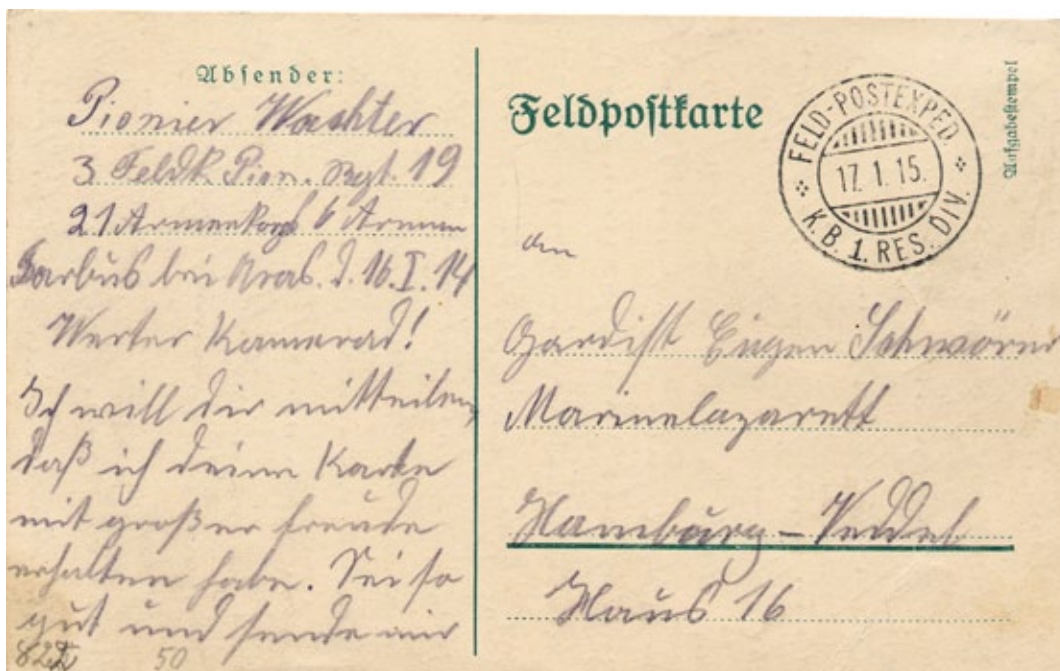 Absender:
Pionier Wachter
3 Feldk. Pion. Rgt. 19
21 Armeekorps 6 Armee
Farbus bei Aras. d. 16.I.14
Werter Kamerad!
Ich will dir mitteilen,
daß ich deine Karte
mit großer Freude
erhalten habe. Sei so
gut und sende mir
50
Feldpostkarte
Aufgabestempel
FELD-POSTEXPED.
17. 1. 15.
K. B. 1. RES. DIV.
an
Gardist Eugen Schwörer
Marinelazarett
Hamburg-Veddel
Haus 16